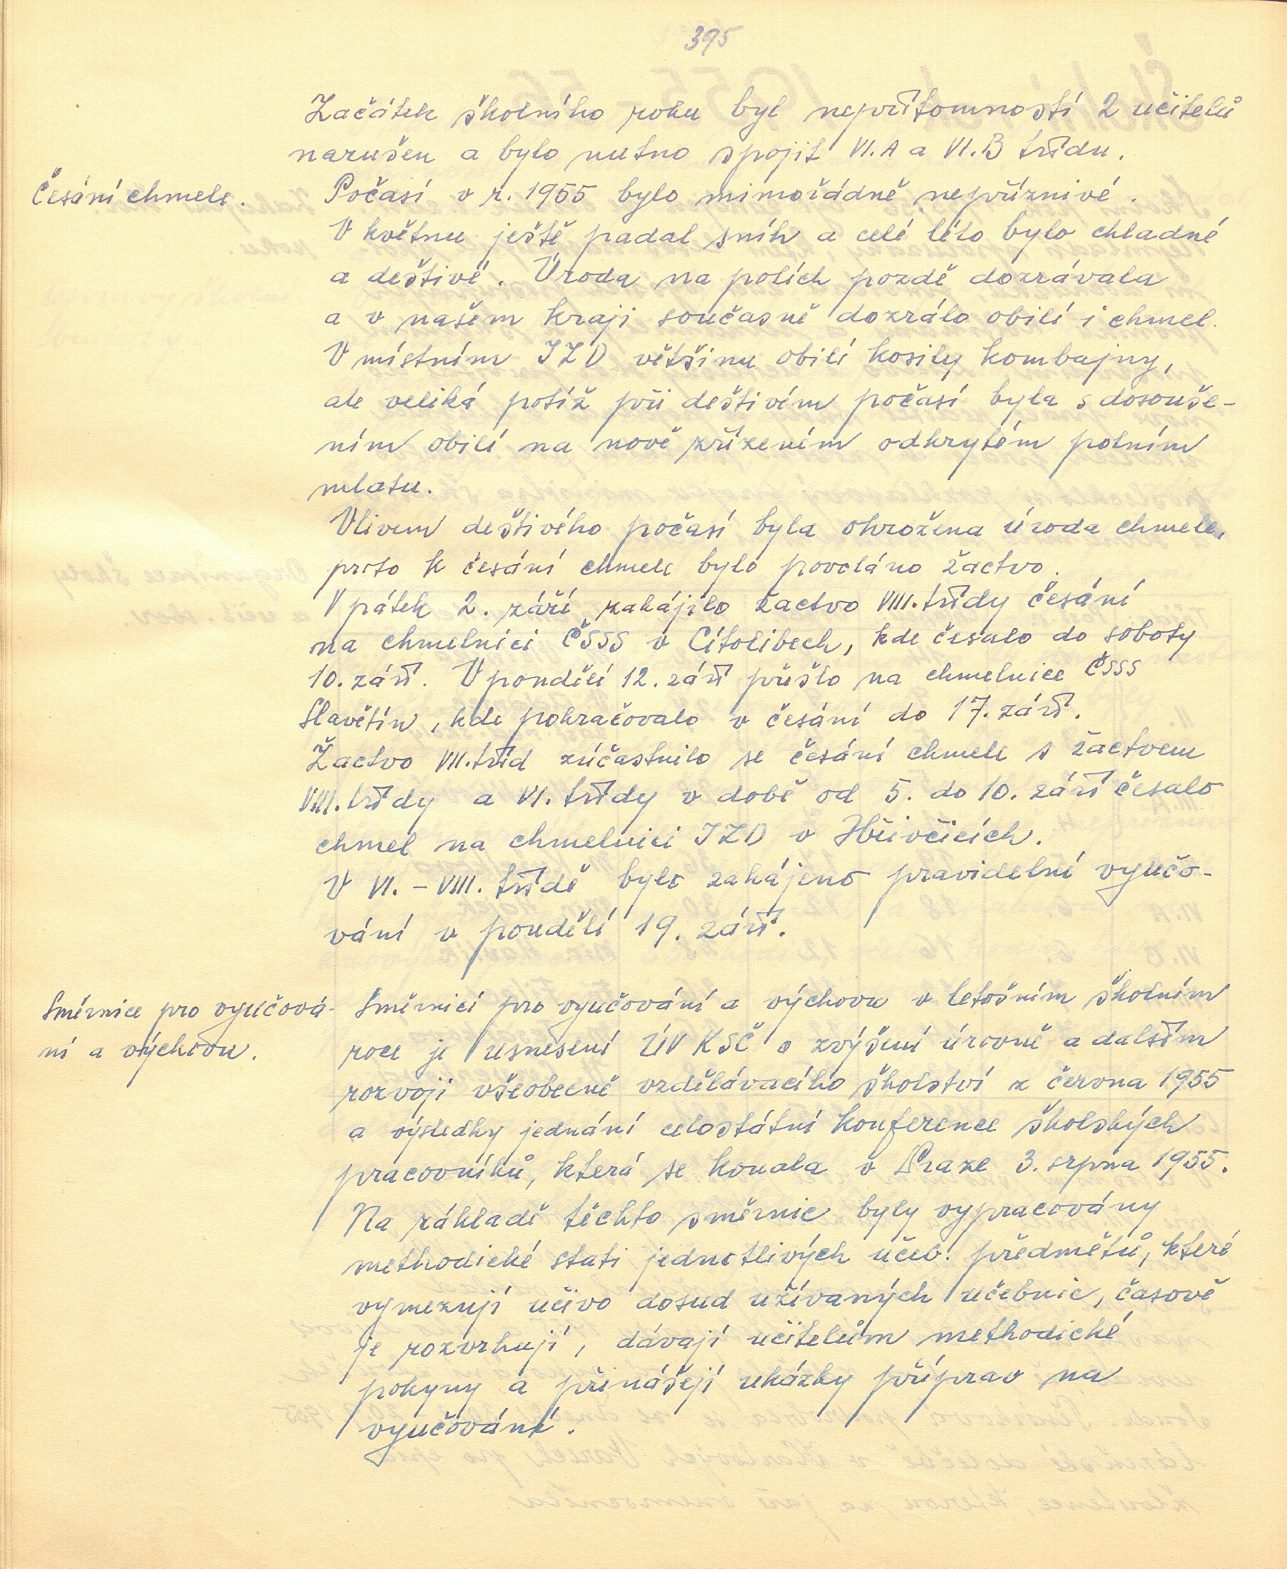 395
Začátek školního roku byl nepřítomností 2 učitelů
narušen a bylo nutno spojit VI.A a VI.B třídu.
Česání chmele.
Počasí v r. 1955 bylo mimořádně nepříznivé.
V květnu ještě padal sníh a celé léto bylo chladné
a deštivé. Úroda na polích pozdě dozrávala
a v našem kraji současně dozrálo obilí i chmel.
V místním JZD většinu obilí kosily kombajny,
ale veliká potíž při deštivém počasí byla s dosouše-
ním obilí na nově zřízeném odkrytém polním
mlatu.
Vlivem deštivého počasí byla ohrožena úroda chmele,
proto k česání chmele bylo povoláno žactvo.
V pátek 2. září zahájilo žactvo VIII. třídy česání
na chmelnici ČSSS v Cítolibech, kde česalo do soboty
10. září. V pondělí 12. září přešlo na chmelnice ČSSS
Slavětín, kde pokračovalo v česání do 17. září.
Žactvo VII. tříd zúčastnilo se česání chmele s žactvem
VIII. třídy a VI. třídy v době od 5. do 10. září česalo
chmel na chmelnici JZD v Hřivčicích.
V VI. - VIII. třídě bylo zahájeno pravidelní vyučo-
vání v pondělí 19. září.
Směrnice pro vyučová-
ní a výchovu.
Směrnicí pro vyučování a výchovu v letošním školním
roce je usnesení ÚV KSČ o zvýšení úrovně a dalším
rozvoji všeobecně vzdělávacího školství z června 1955
a výsledky jednání celostátní konference školských
pracovníků, která se konala v Praze 3. srpna 1955.
Na základě těchto směrnic byly vypracovány
methodické stati jednotlivých učeb. předmětů, které
vymezují učivo dosud užívaných učebnic, časově
je rozvrhují, dávají učitelům methodické
pokyny a přinášejí ukázky příprav na
vyučování.